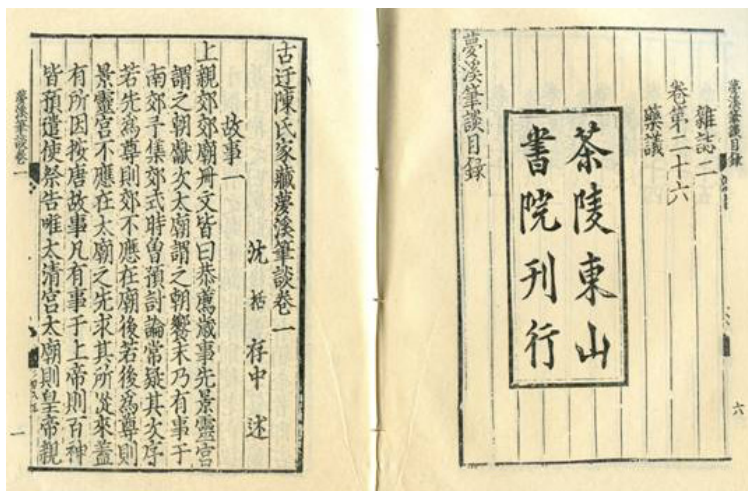 夢溪筆談目錄
六
雜誌二
卷第二十六
藥議
茶陵東山
書院刊行
夢溪筆談目錄
古迂陳氏家藏夢溪筆談卷一
沈括存中述
故事一
上親郊郊廟册文皆曰恭薦歲事先景靈宮
謂之朝獻次太廟謂之朝饗末乃有事于
南郊予集郊式時曽預討論常疑其次序
若先爲尊則郊不應在廟後若後爲尊則
景靈宮不應在太廟之先求其所從來蓋
有所因按唐故事凡有事于上帝則百神
皆預遣使祭告唯太清宮太廟則皇帝親
夢溪筆談卷一
一